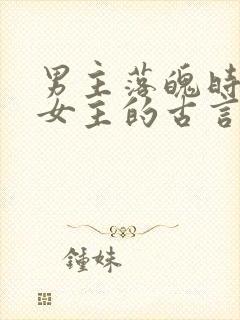 男主落魄时
女主的古言
鍾妹